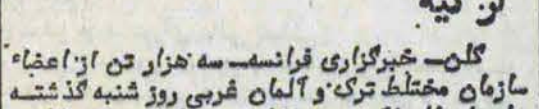 کلن ـ خبرگزاری فرانسه ـ سه هزار تن از اعضاء
سازمان مختلط ترک و آلمان غربی روز شنبه گذشته